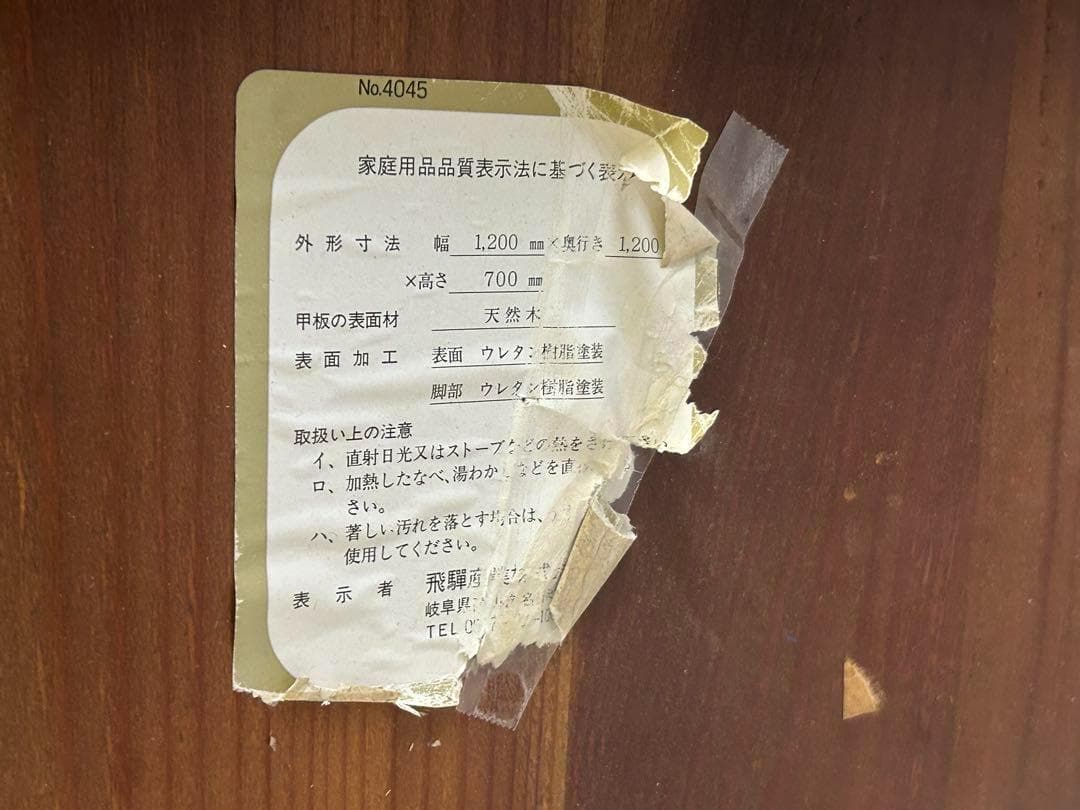 No.4045
家庭用品品質表示法に基づく表示
外形寸法 幅 1,200 ㎜×奥行き 1,200
×高さ 700 ㎜
甲板の表面材 天然木
表面加工 表面 ウレタン樹脂塗装
脚部 ウレタン樹脂塗装
取扱い上の注意
イ、直射日光又はストーブなどの熱をさ
ロ、加熱したなべ、湯わかしなどを直
さい。
ハ、著しい汚れを落とす場合は、
使用してください。
表示者 飛驒産業株式
岐阜県
TEL